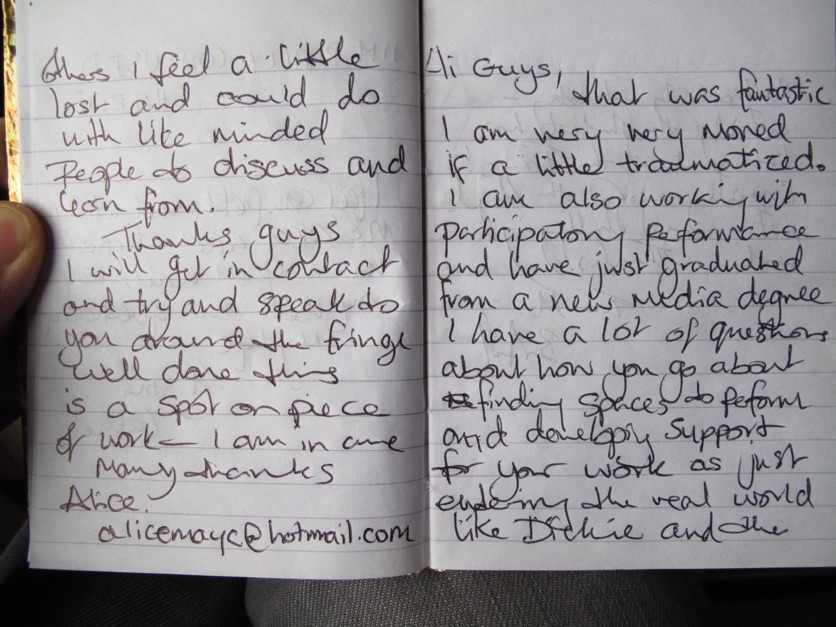 others I feel a little
lost and could do
with like minded
people to discuss and
learn from.
Thanks guys
I will get in contact
and try and speak to
you around the fringe
well done this
is a spot on piece
of work – I am in awe
Many thanks
Alice.
alicemayc@hotmail.com
Hi Guys,
that was fantastic
I am very very moved
if a little traumatized.
I am also working with
participatory performance
and have just graduated
from a new media degree
I have a lot of questions
about how you go about
finding spaces to peform
and developing support
for your work as just
entering the real world
like and the